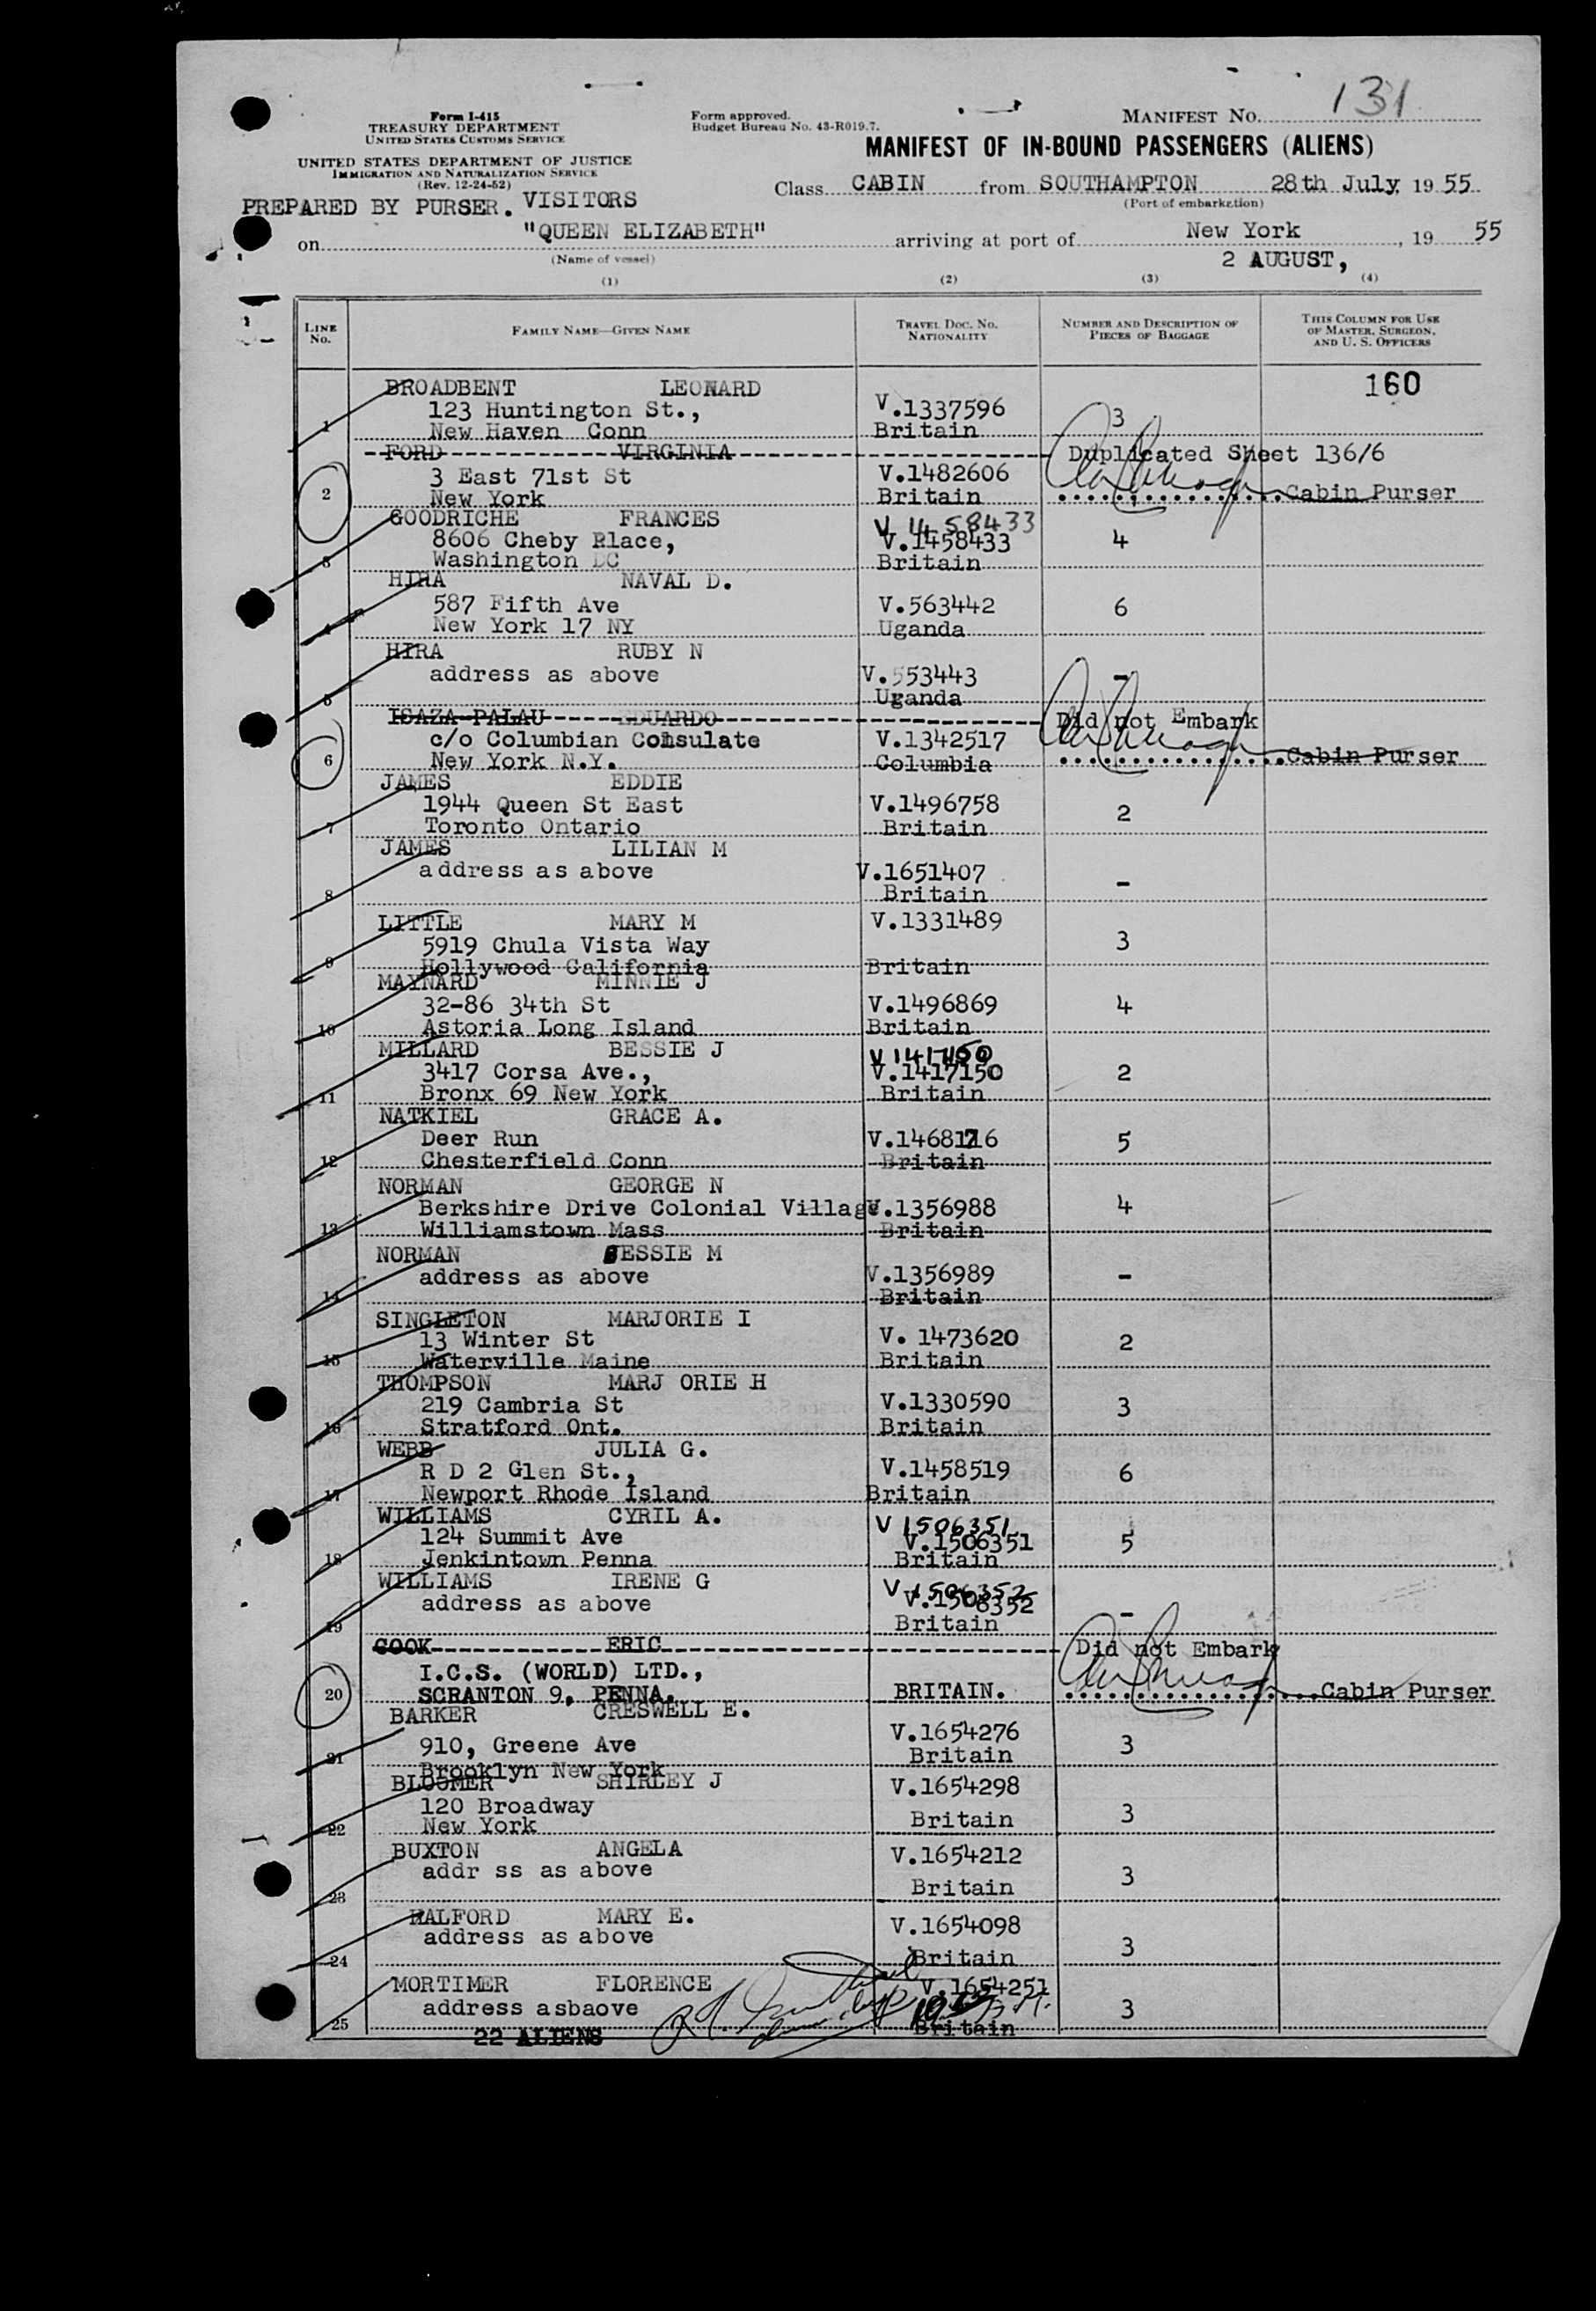 131
Form I-415
TREASURY DEPARTMENT
UNITED STATES CUSTOMS SERVICE
Form approved.
Budget Bureau No. 43-R019.7.
MANIFEST NO.
UNITED STATES DEPARTMENT OF JUSTICE
IMMIGRATION AND NATURALIZATION SERVICE
(Rev. 12-24-52)
MANIFEST OF IN-BOUND PASSENGERS (ALIENS)
Class CABIN from SOUTHAMPTON 28th July, 19 55
(Port of embarkation)
PREPARED BY PURSER. VISITORS
on "QUEEN ELIZABETH" arriving at port of New York, 19 55
(Name of vessel) 2 AUGUST,
(1) (2) (3) (4)
LINE NO. FAMILY NAME—GIVEN NAME TRAVEL DOC. NO. NATIONALITY NUMBER AND DESCRIPTION OF PIECES OF BAGGAGE THIS COLUMN FOR USE OF MASTER, SURGEON, AND U. S. OFFICERS
160
BROADBENT LEONARD
123 Huntington St., V.1337596 3
1 New Haven Conn Britain
FORD VIRGINIA Duplicated Sheet 136/6
3 East 71st St V.1482606
2 New York Britain Cabin Purser
GOODRICHE FRANCES V 1458433
8606 Cheby Place, V.1458433 4
3 Washington DC Britain
HIRA NAVAL D.
587 Fifth Ave V.563442 6
4 New York 17 NY Uganda
HIRA RUBY N
address as above V.553443 -
5 Uganda
ISAZA-PALAU EDUARDO Did not Embark
c/o Columbian Consulate V.1342517
6 New York N.Y. Columbia Cabin Purser
JAMES EDDIE
1944 Queen St East V.1496758 2
7 Toronto Ontario Britain
JAMES LILIAN M
address as above V.1651407 -
8 Britain
LITTLE MARY M V.1331489
5919 Chula Vista Way 3
9 Hollywood California Britain
MAYNARD MINNIE J
32-86 34th St V.1496869 4
10 Astoria Long Island Britain
MILLARD BESSIE J V 1417150
3417 Corsa Ave., V.1417150 2
11 Bronx 69 New York Britain
NATKIEL GRACE A.
Deer Run 5
12 Chesterfield Conn Britain
NORMAN GEORGE N
Berkshire Drive Colonial Village V.1356988 4
13 Williamstown Mass Britain
NORMAN JESSIE M
address as above V.1356989 -
14 Britain
SINGLETON MARJORIE I
13 Winter St V. 1473620 2
15 Waterville Maine Britain
THOMPSON MARJ ORIE H
219 Cambria St V.1330590 3
16 Stratford Ont. Britain
WEBB JULIA G.
R D 2 Glen St., V.1458519 6
17 Newport Rhode Island Britain
WILLIAMS CYRIL A. V 1506351
124 Summit Ave V.1506351 5
18 Jenkintown Penna Britain
WILLIAMS IRENE G V 1506352
address as above V.1506352 -
19 Britain
COOK ERIC Did not Embark
I.C.S. (WORLD) LTD.,
20 SCRANTON 9, PENNA. BRITAIN. Cabin Purser
BARKER CRESWELL E.
910, Greene Ave V.1654276 3
21 Brooklyn New York Britain
BLOOMER SHIRLEY J V.1654298
120 Broadway 3
22 New York Britain
BUXTON ANGELA V.1654212
addr ss as above 3
23 Britain
HALFORD MARY E. V.1654098
address as above 3
24 Britain
MORTIMER FLORENCE V.1654251
address asbaove 3
25 Britain
22 ALIENS